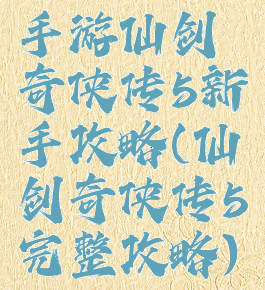 手游仙剑
奇侠传5新
手攻略(仙
剑奇侠传5
完整攻略)